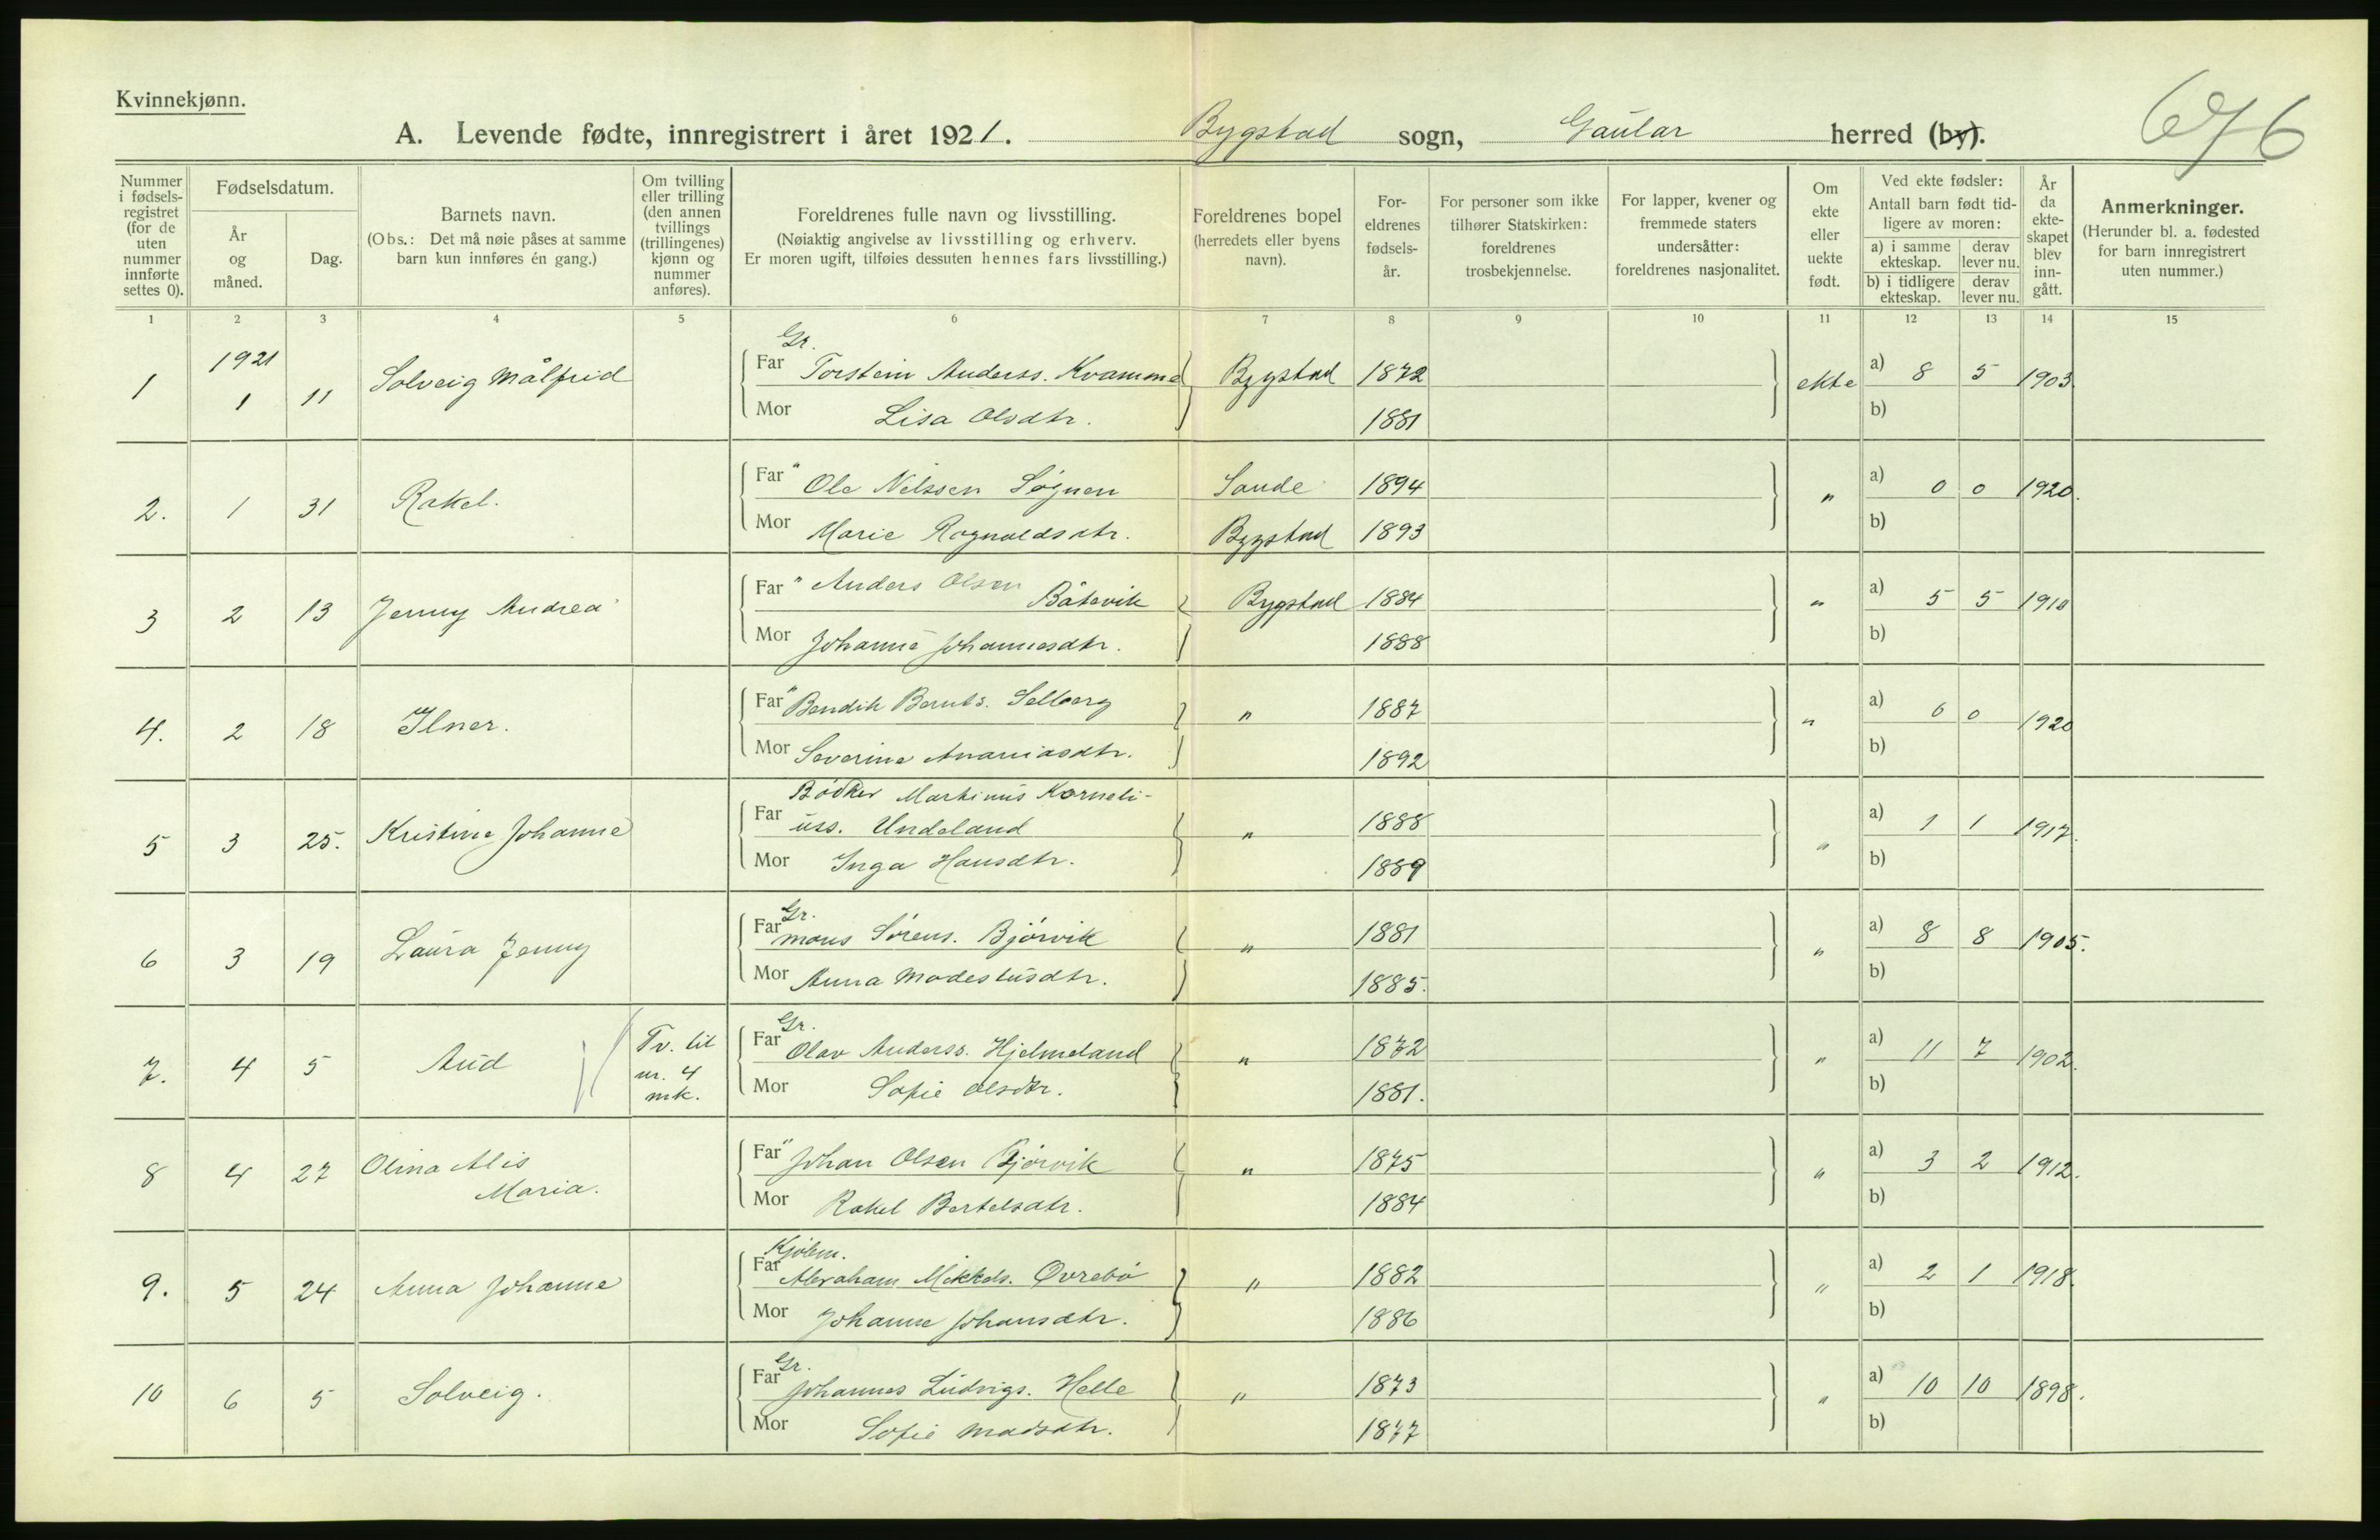 Kvinnekjønn.
676
A. Levende fødte, innregistrert i året 1921. Bygstad sogn, Gaular herred (by).
Nummer i fødselsregistret (for de uten nummer innførte settes 0).
Fødselsdatum.
År og måned.
Dag.
Barnets navn.
(Obs.: Det må nøie påses at samme barn kun innføres én gang.)
Om tvilling eller trilling (den annen tvillings (trillingenes) kjønn og nummer anføres).
Foreldrenes fulle navn og livsstilling.
(Nøiaktig angivelse av livsstilling og erhverv.
Er moren ugift, tilføies dessuten hennes fars livsstilling.)
Foreldrenes bopel (herredets eller byens navn).
Foreldrenes fødselsår.
For personer som ikke tilhører Statskirken: foreldrenes trosbekjennelse.
For lapper, kvener og fremmede staters undersåtter: foreldrenes nasjonalitet.
Om ekte eller uekte født.
Ved ekte fødsler: Antall barn født tidligere av moren:
a) i samme ekteskap. derav lever nu.
b) i tidligere ekteskap. derav lever nu.
År da ekteskapet blev inngått.
Anmerkninger.
(Herunder bl. a. fødested for barn innregistrert uten nummer.)
1 2 3 4 5 6 7 8 9 10 11 12 13 14 15
1921
Gr.
1 1 11 Solveig Målfrid Far Torstein Anderss. Kvamme Bygstad 1872 ekte a) 8 5 1903
Mor Lisa Olsdtr. 1881 b)
2. 1 31 Rakel. Far " Ole Nilssen Søgnen Sande 1894 " a) 0 0 1920.
Mor Marie Rognaldsdtr. Bygstad 1893 b)
3 2 13 Jenny Andrea Far " Anders Olsen Båtevik Bygstad 1884 " a) 5 5 1910
Mor Johanne Johannesdtr. 1888 b)
4. 2 18 Ilner. Far " Bendik Bernts. Selberg " 1887 " a) 0 0 1920
Mor Severine Ananiasdtr. 1892 b)
Bødker Martinus Korneli-
5 3 25. Kristine Johanne Far uss. Undeland " 1888 " a) 1 1 1917.
Mor Inga Hansdtr. 1889 b)
Gr.
6 3 19 Laura Jenny Far Mons Sørens. Bjørvik " 1881 " a) 8 8 1905.
Mor Anna Modestusdtr. 1885. b)
Gr.
7. 4 5 Aud Tv. til nr. 4 mk. Far Olav Anderss. Hjelmeland " 1872 " a) 11 7 1902.
Mor Sofie Olsdtr. 1881. b)
8 4 27 Olina Alis Maria. Far " Johan Olsen Bjørvik " 1875 " a) 3 2 1912.
Mor Rakel Bertelsdtr. 1884 b)
Kjøbm.
9. 5 24 Anna Johanne Far Abraham Mikkels. Øvrebø " 1882 " a) 2 1 1918.
Mor Johanne Johansdtr. 1886 b)
Gr.
10 6 5 Solveig. Far Johannes Ludvigs. Helle " 1873 " a) 10 10 1898.
Mor Sofie Madsdtr. 1877 b)